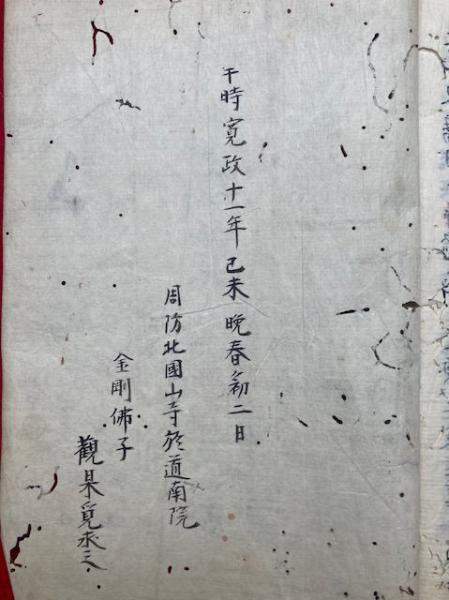 干時寛政十一年己未晩春初二日
周防北國山寺於道南院
金剛佛子
觀杲